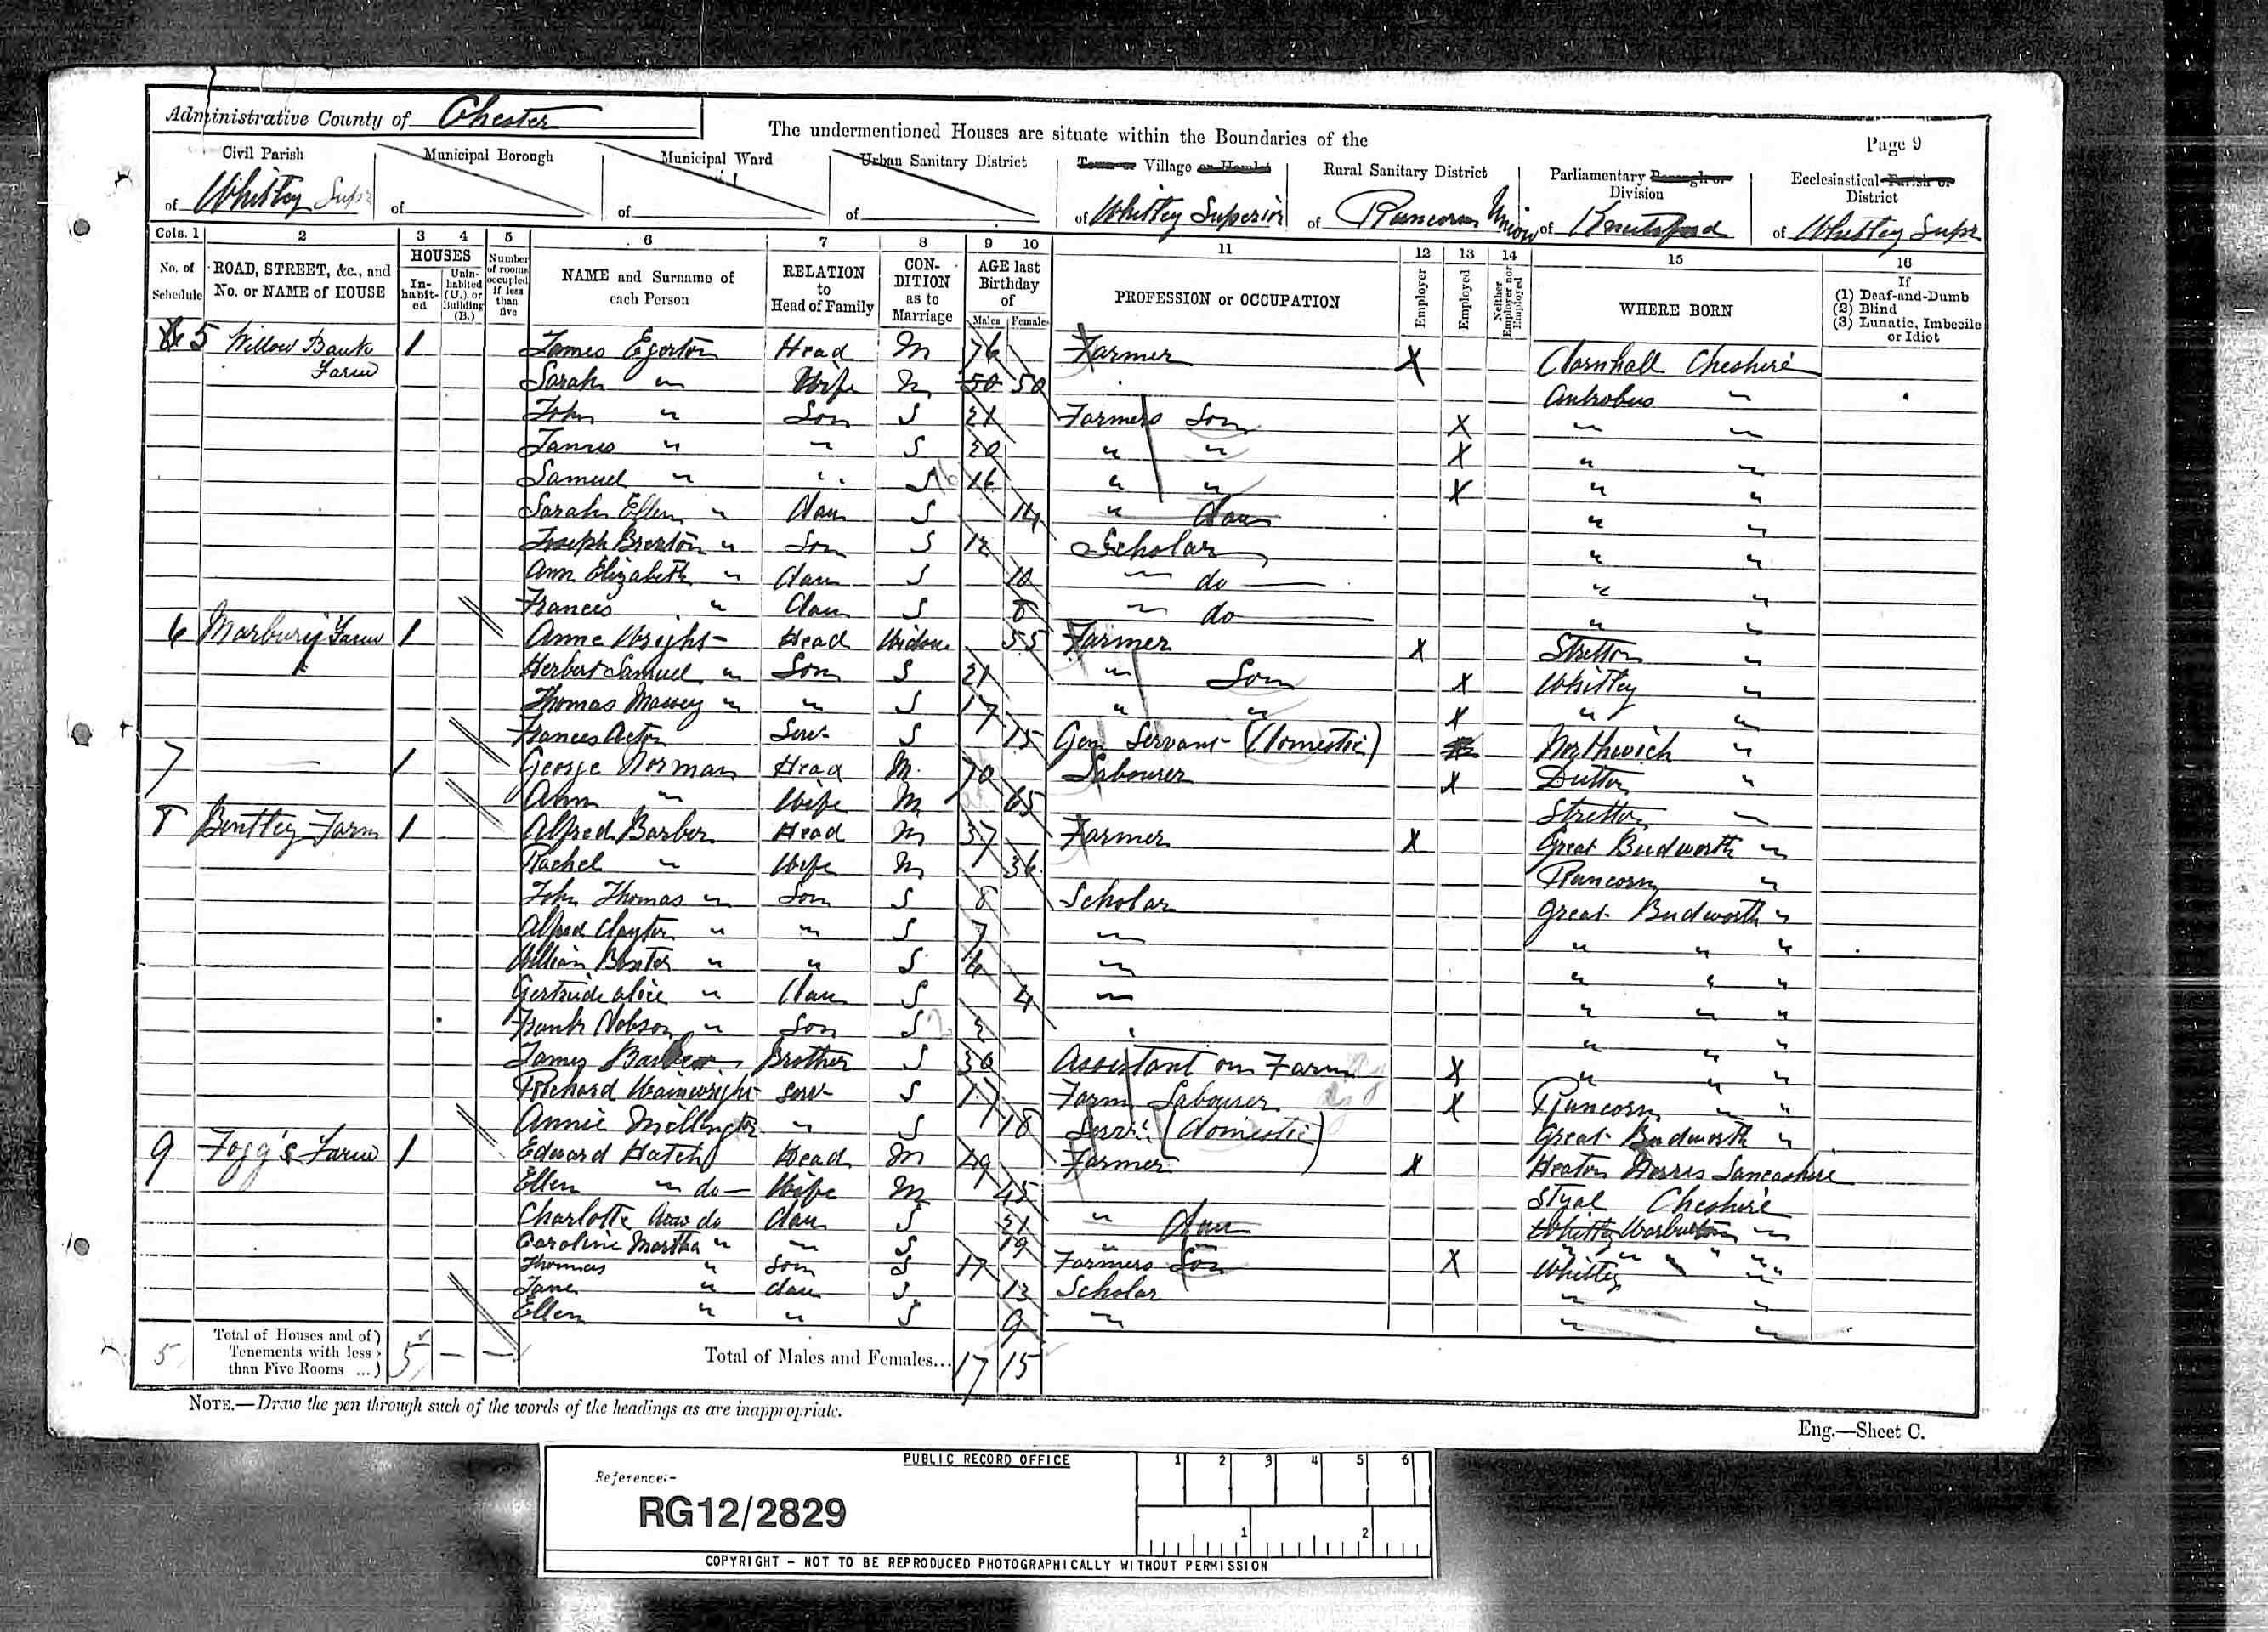 Administrative County of Chester
The undermentioned Houses are situate within the Boundaries of the
Page 9
Civil Parish of Whitley Supr
Municipal Borough of
Municipal Ward of
Urban Sanitary District of
Town or Village or Hamlet of Whitley Superior
Rural Sanitary District of Runcorn Union
Parliamentary Borough or Division of Knutsford
Ecclesiastical Parish or District of Whitley Supr
Cols. 1 2 3 4 5 6 7 8 9 10 11 12 13 14 15 16
No. of Schedule
ROAD, STREET, &c., and No. or NAME of HOUSE
HOUSES
In-habit-ed
Unin-habited (U.), or Building (B.)
Number of rooms occupied if less than five
NAME and Surname of each Person
RELATION to Head of Family
CON-DITION as to Marriage
AGE last Birthday of
Males Females
PROFESSION or OCCUPATION
Employer
Employed
Neither Employer nor Employed
WHERE BORN
If
(1) Deaf-and-Dumb
(2) Blind
(3) Lunatic, Imbecile or Idiot
5 Willow Bank Farm 1 James Egerton Head M 76 Farmer X Darnhall Cheshire
Sarah " Wife M 50 50 Antrobus "
John " Son S 21 Farmers Son X " "
James " " S 20 " " X " "
Samuel " " S 16 " " X " "
Sarah Ellen " Dau S 14 " Dau " "
Joseph Brereton " Son S 12 Scholar " "
Ann Elizabeth " Dau S 10 " do " "
Frances " Dau S 8 " do " "
6 Marbury Farm 1 Anne Wright Head Widow 55 Farmer X Stretton "
Herbert Samuel " Son S 21 " Son X Whitley "
Thomas Massey " " S 17 " " X " "
Frances Acton Serv S 15 Gen Servant (Domestic) X Northwich "
7 — 1 George Norman Head M 70 Labourer X Dutton "
Ann " Wife M 65 Stretton "
8 Bentley Farm 1 Alfred Barber Head M 37 Farmer X Great Budworth "
Rachel " Wife M 36 Runcorn "
John Thomas " Son S 8 Scholar Great Budworth "
Alfred Clayton " " S 7 " " " "
William Baxter " " S 6 " " " "
Gertrude Alice " Dau S 4 " " " "
Frank Hobson " Son S 2 " " "
James Barber Brother S 30 Assistant on Farm X " " "
Richard Wainwright Serv S 17 Farm Labourer X Runcorn " "
Annie Millington " S 18 Servt (Domestic) Great Budworth "
9 Fogg's Farm 1 Edward Hatch Head M 49 Farmer X Heaton Norris Lancashire
Ellen " do Wife M 45 Styal Cheshire
Charlotte Ann do Dau S 21 " Dau Whitley Warburton "
Caroline Martha " " S 19 " " " " " "
Thomas " Son S 17 Farmers Son X Whitley "
Jane " Dau S 13 Scholar " "
Ellen " " S 9 " " "
5 Total of Houses and of Tenements with less than Five Rooms ... 5 — — Total of Males and Females... 17 15
NOTE.—Draw the pen through such of the words of the headings as are inappropriate.
Eng.—Sheet C.
PUBLIC RECORD OFFICE
Reference:-
RG12/2829
1 2 3 4 5 6
1 2
COPYRIGHT - NOT TO BE REPRODUCED PHOTOGRAPHICALLY WITHOUT PERMISSION